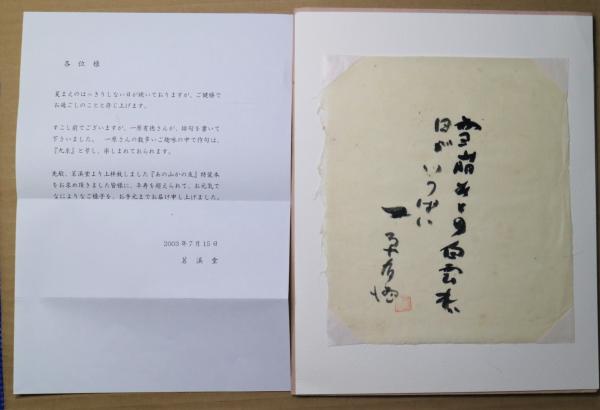 各位様
夏まえのはっきりしない日が続いておりますが、ご健勝で
お過ごしのことと存じ上げます。
すこし前でございますが、一原有徳さんが、俳句を書いて
下さいました。 一原さんの数多いご趣味の中で作句は、
『九糸』と号し、楽しまれておられます。
先般、茗溪堂より上梓致しました『あの山かの友』特装本
をお求め頂きました皆様に、卒寿を超えられて、お元気で
なによりなご様子を、お手元までお届け申し上げました。
2003年7月15日
茗溪堂
雪崩あとの白雲木
日がいっぱい
一原有徳